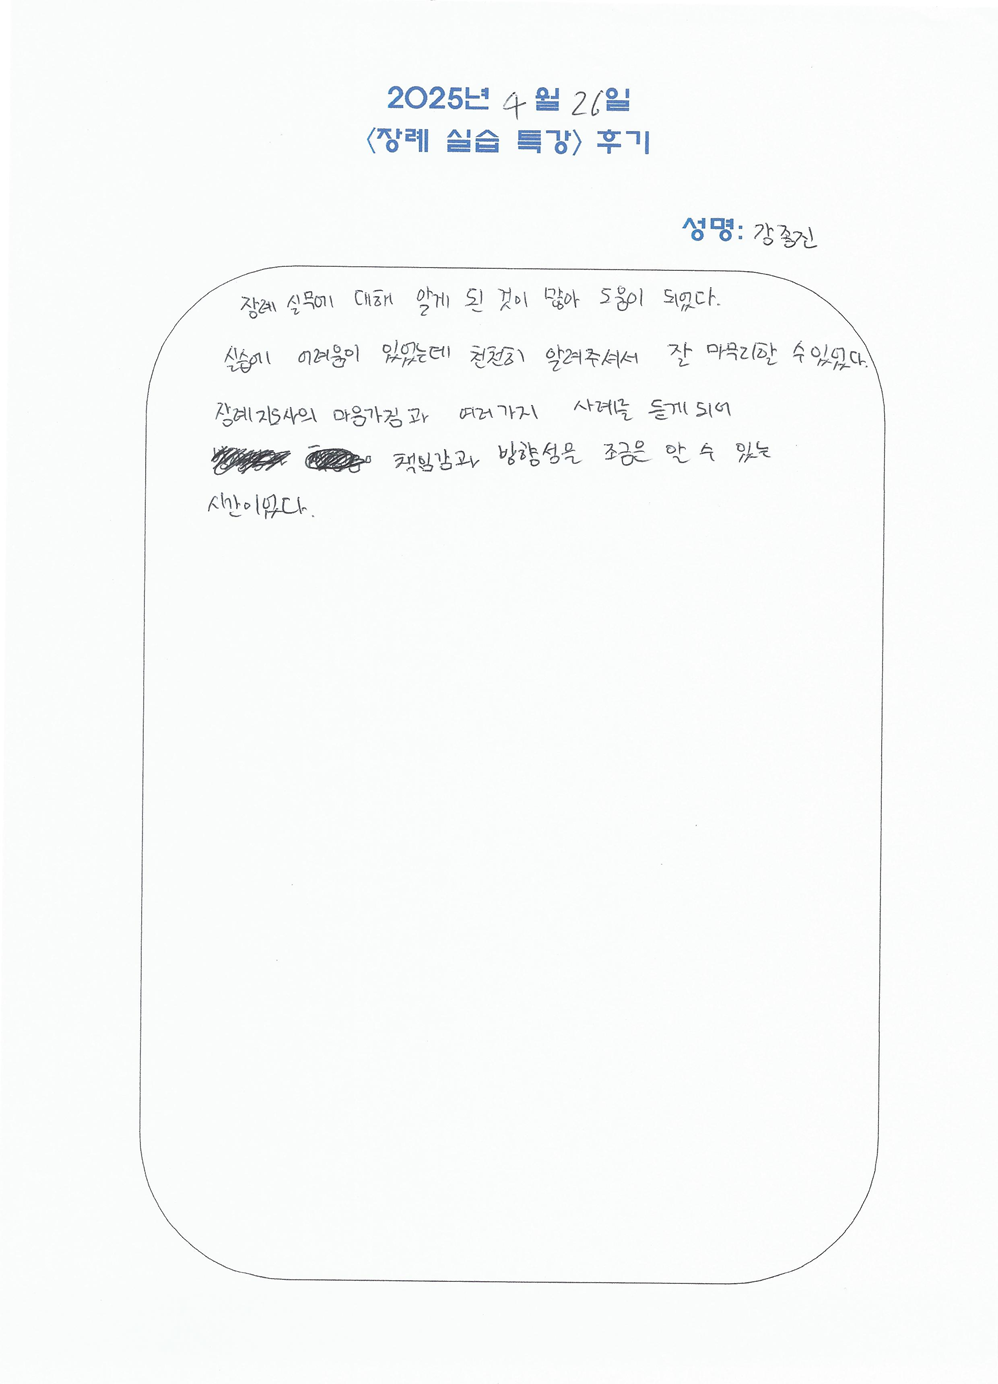 2025년 4월 26일
<장례 실습 특강> 후기
성명: 강종진
장례 실무에 대해 알게 된 것이 많아 도움이 되었다.
실습에 어려움이 있었는데 천천히 알려주셔서 잘 마무리할 수있었다.
장례지도사의 마음가짐과 여러가지 사례를 듣게 되어
책임감과 방향성을 조금은 알 수 있는
시간이었다.